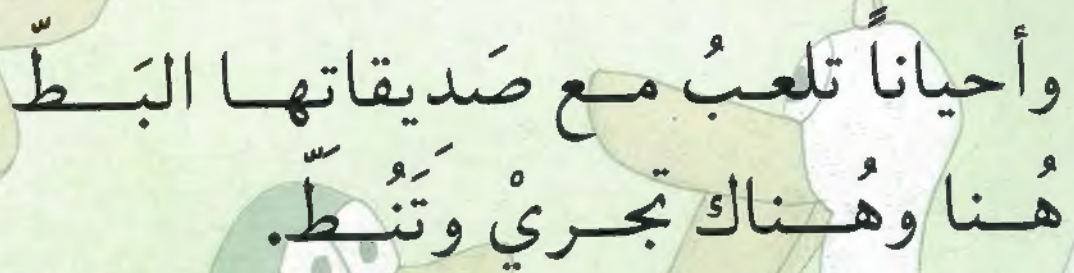 وأحياناً تلعبُ مع صَديقاتها البَطّ
هُنا وهُناك تجريْ وتَنُطَّ.